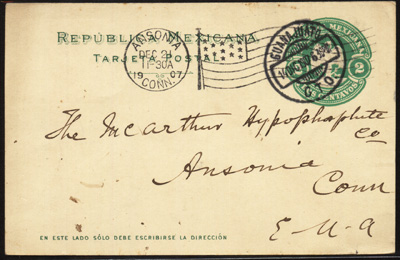 REPÚBLICA MEXICANA.
TARJETA POSTAL
ANSONIA
DEC 21
11-30A
1907
CONN.
GUANAJUATO
GTO.
MEXICANO
2
CENTAVOS
The McArthur Hypophosphite
Co
Ansonia
Conn
E-U-A
EN ESTE LADO SÓLO DEBE ESCRIBIRSE LA DIRECCIÓN